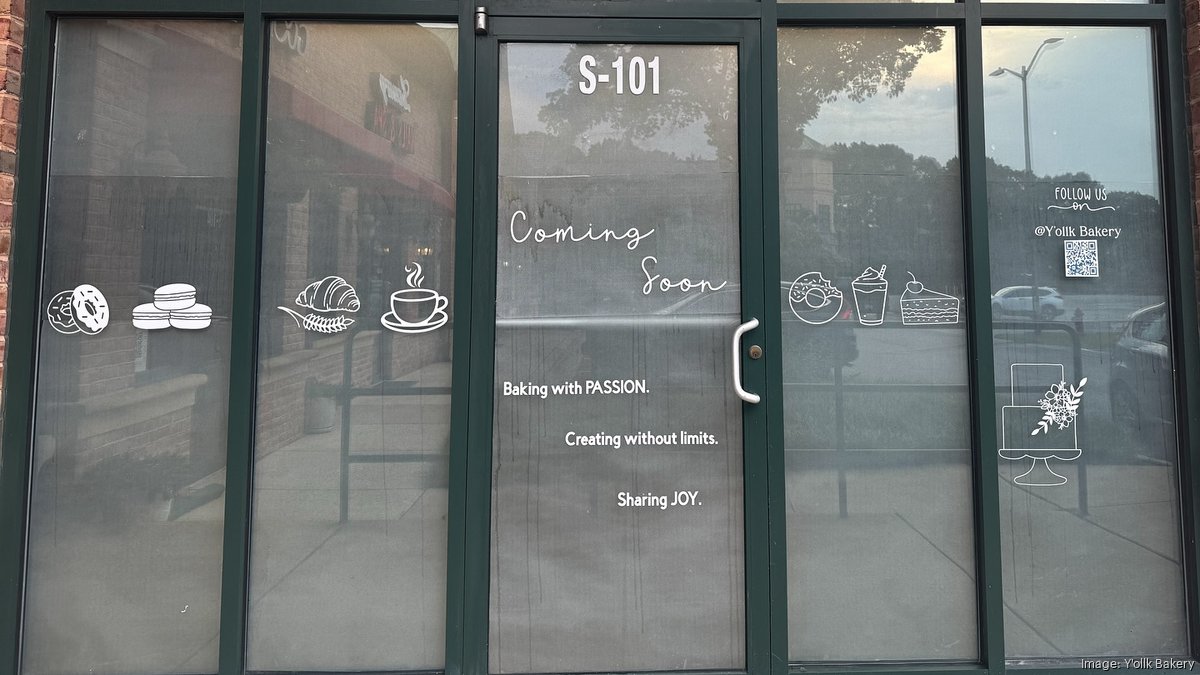 S-101
Coming
Soon
FOLLOW US
on
@Y'ollk Bakery
Baking with PASSION.
Creating without limits.
Sharing JOY.
Image: Y'ollk Bakery